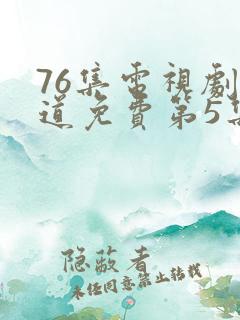 76集電視劇
道免費第5集
隐敝者
未经同意禁止转载